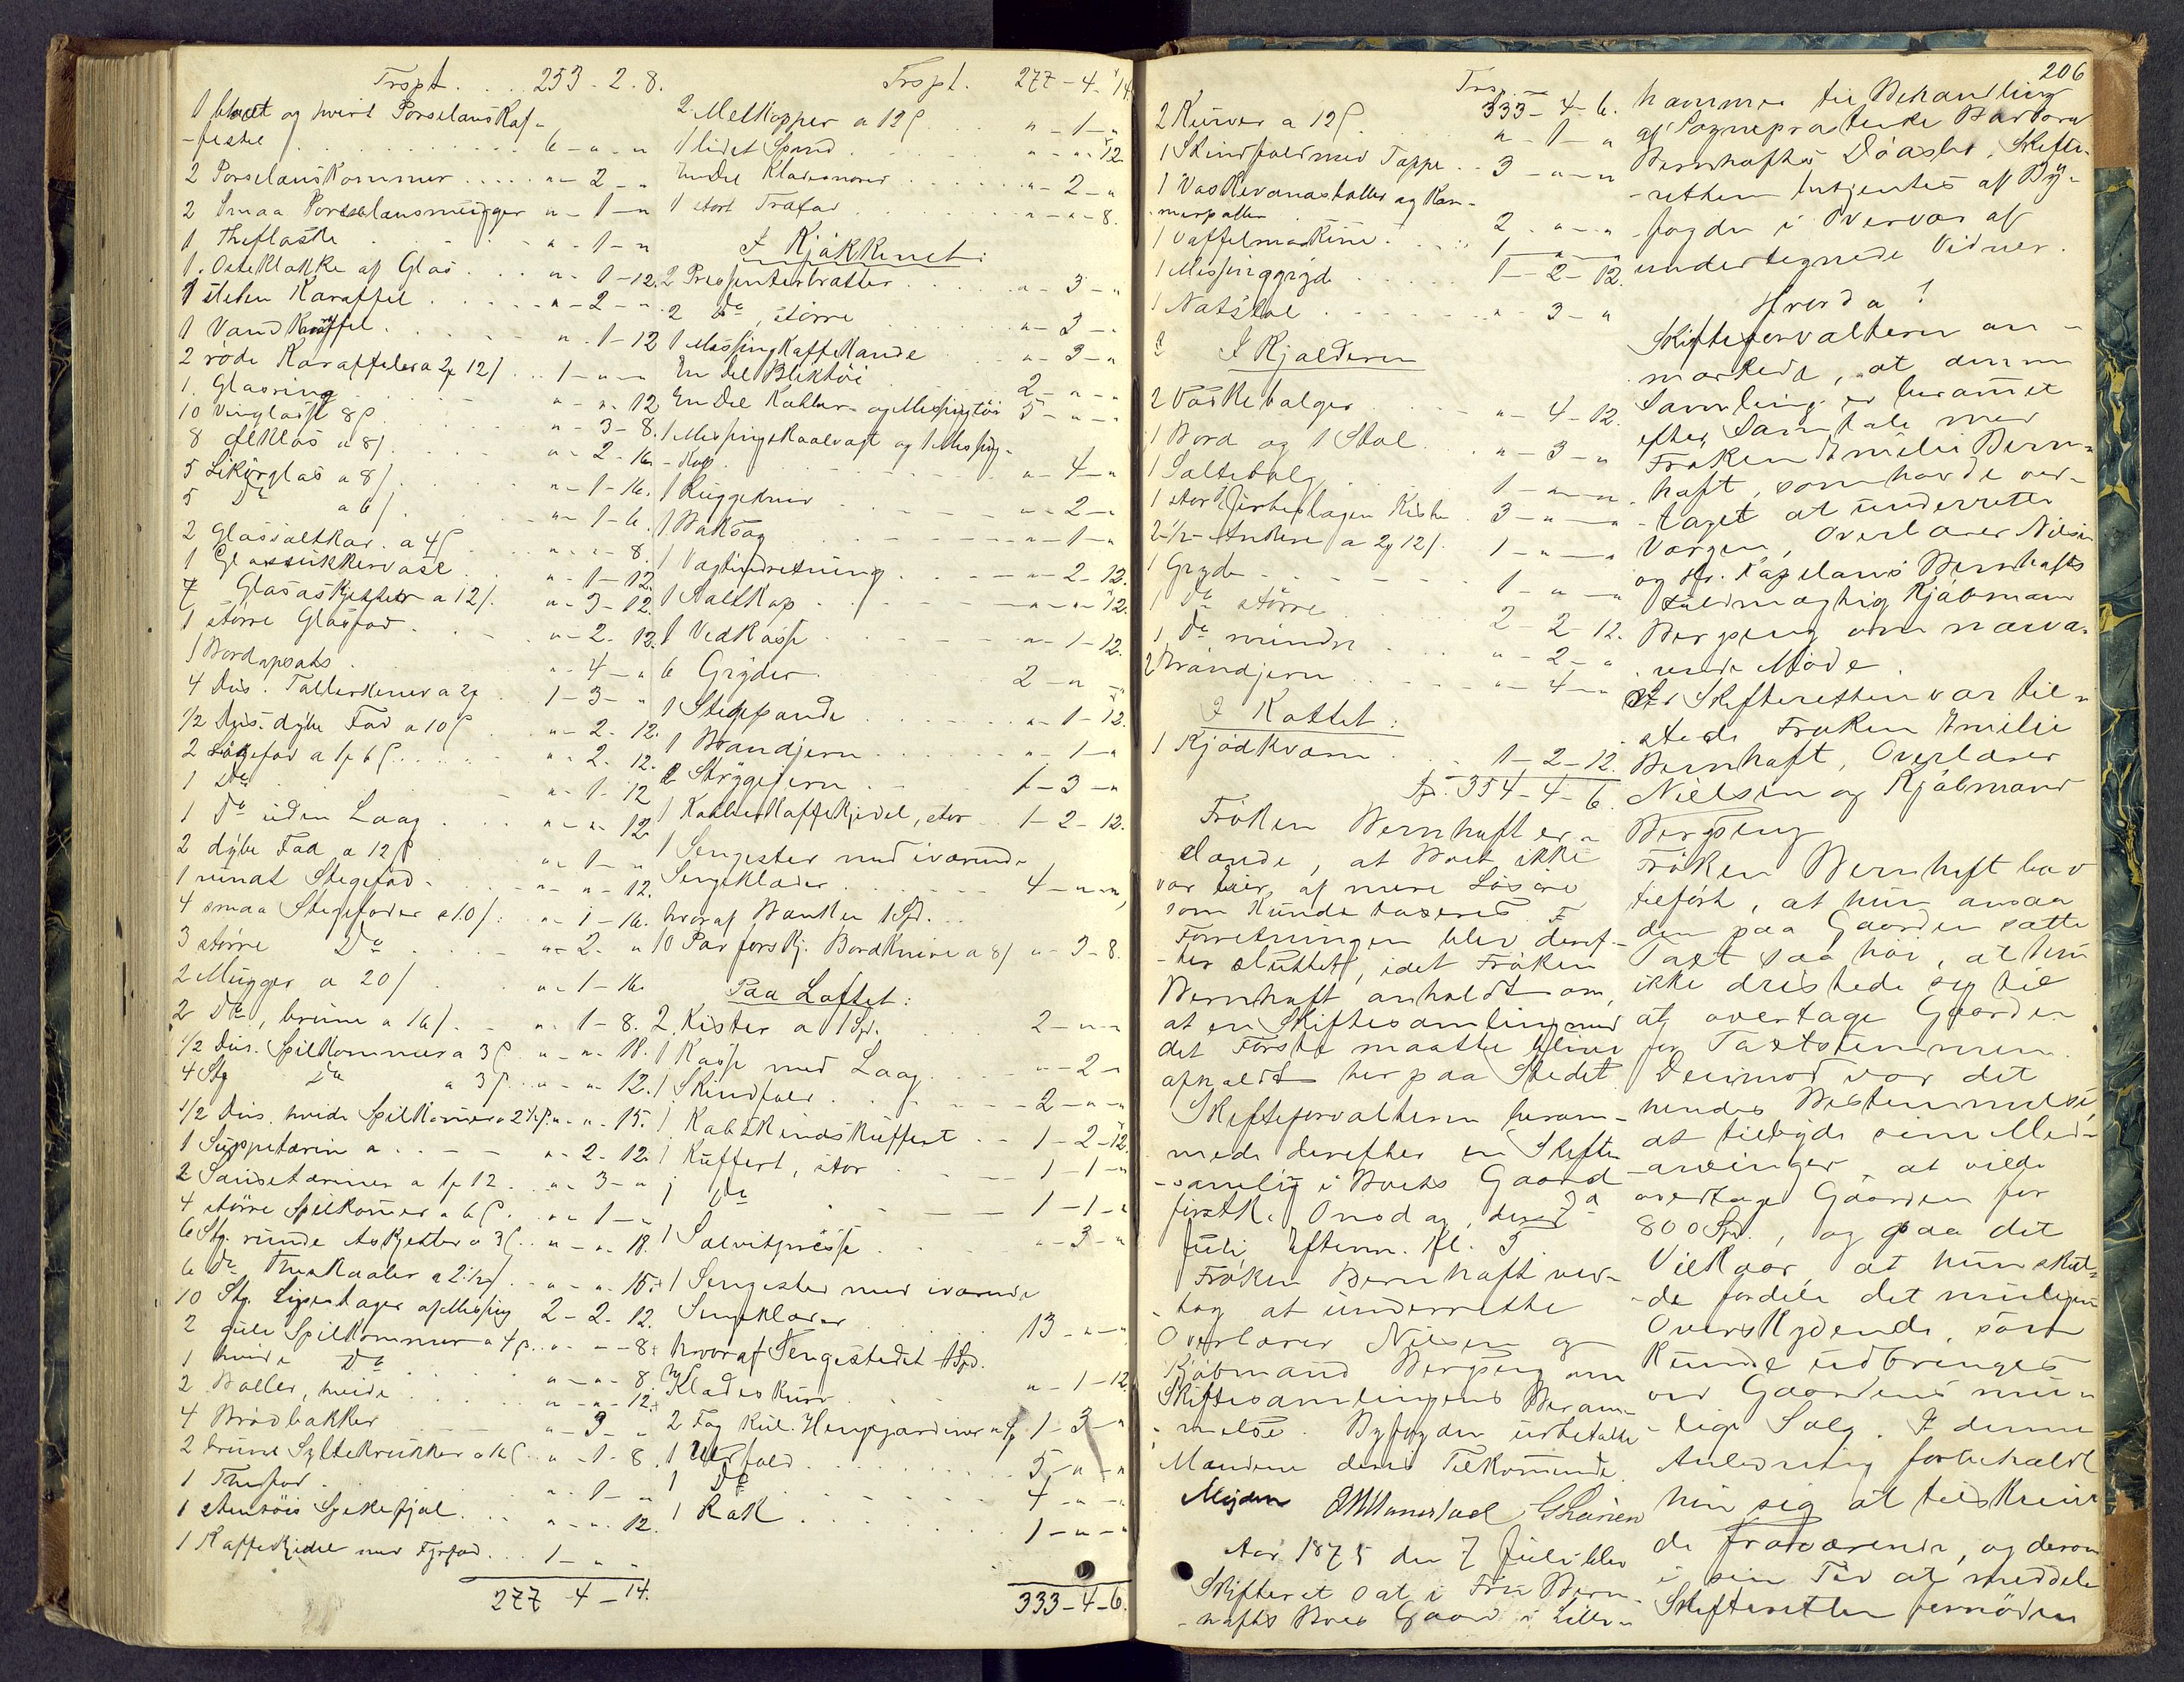 Trspt. . . . 253-2-8.
1 blaat og hvidt PorselansKaf-
-festel . . . 6-"-"
2 PorselansKommer . . . . "-2-"
2 Smaa Porselansmugger "-1-"
1 Theflaske . . . "-1-"
1 OsteKlokke af Glas . . "-1-12.
1 sleben Karaffel . . . "-2-"
1 VandKaraffel . . . "-1-12
2 røde Karaffeler a 2 12 . . 1-"-"
1 Glasring . . . "-"-12
10 Vinglas a 8 . . . "-3-8.
8 Ølglas a 8 . . . "-2-16
5 Likørglas a 8 . . "-1-16.
5 Do a 6 . . . "-1-6.
2 Glassaltkar a 4 . . . "-"-8.
1 Glassukkervase . . "-1-12.
7 Glasasjetter a 12 . "-3-12.
1 større Glasfad . . . "-2-12.
1 Bordopsats . . . "-4-"
4 Dus. Tallerkener a 2 . . 1-3-"
1/2 Dus. dybe Fad a 10 . . "-2-12.
2 Lågefad a 1 6 . . . "-2-12.
1 Do . . . "-1-12
1 Do uden Laag . . . "-"-12
2 dybe Fad a 12 . . . "-1-"
1 rundt Stegefad . . . "-"-12.
4 smaa Stegefader a 10 . "-1-16.
3 større Do . . . "-2-"
2 Mugger a 20 . . . "-1-16.
2 Do, brune a 16 . . "-1-8.
1/2 Dus. Spilkommer a 3 "-"-18.
4 Stk Do a 3 . . "-"-12.
1/2 Dus. hvide Spilkommer a 2 1/2 "-"-15.
1 Suppeterrin a . . . "-2-12.
2 Sauseterriner a 1 12 . . "-3-"
4 større Spilkommer a 6 . . "-1-"
6 Stk. runde Asjetter a 3 . . "-"-18.
6 Do Theskaaler a 2 1/2 . . "-"-15.
10 Stk. Lysestager af Messing 2-2-12.
2 gule Spilkommer a 4 . . "-"-8.
1 hvide Do . . . "-"-8.
2 Boller, hvide . . . "-"-12.
4 Brødbakker . . . "-3-"
2 brune Syltekrukker a 16 . . "-1-8.
1 Thefad . . . "-1-"
1 stentøis Spekefjæl . . "-"-12.
1 Kaffekjedel med Fyrfad . . . 1-"-"
277-4-14.
Trspt. 277-4-14.
2 Melkopper a 12 . . . "-1-"
1 lidet Spand . . . "-"-12
En Del Klædesnorer . . . "-2-"
1 stort Træfad . . . "-"-8.
I Kjøkkenet:
2 Presenterbrætter . . . "-3-"
2 Do, større . . . "-3-"
1 MessingKaffeKande . . "-3-"
En Del Bliktøi . . . 2-"-"
En Del Kobber- og Messingtøi 5-"-"
1 Messings Kaalvagt og 1 Messing-
-Kop . . . "-4-"
1 Ruggekniv . . . "-2-"
1 Baksag . . . "-1-"
1 Vægtindretning . . . "-2-12.
1 Saltkop . . . "-"-12.
1 Vedkasse . . . "-1-12.
6 Gryder . . . 2-"-"
1 Stegpande . . . "-1-12.
1 Brandjern . . . "-1-"
2 Strygejern . . . 1-3-"
1 KobberKaffekjedel, stor . . 1-2-12.
1 Sengested med iværende
Sengeklæder . . . 4-"-"
hvoraf Bænken 1 Spd.
10 Par forskj. Bordknive a 8 "-3-8.
Paa Loftet:
2 Kister a 1 Spd. . . . 2-"-"
1 Kasse med Laag . . . "-2-"
1 Skindfeld . . . 2-"-"
1 KalvskindsKuffert . . 1-2-12.
1 Kuffert, stor . . . 1-1-"
1 Do . . . 1-1-"
1 Salvitpresse . . . "-3-"
1 Sengested med iværende
Sengeklæder . . . 13-"-"
hvoraf Sengestedet 1 Spd.
1 Klædeskurv . . . "-1-12.
2 Fag Rul. Hengegardiner a Spd 1-3-"
1 Uldfeld . . . 5-"-"
1 Do . . . 4-"-"
1 Rok . . . 1-"-"
333-4-6.
206
Trsp. 333-4-6.
2 Kurver a 12 . . . "-1-"
1 Skindfeld med Tæppe . . 3-"-"
1 Vaskevandsbolle og Kam-
merpotte . . . 2-"-"
1 Vaffelmaskine . . . 1-"-"
1 Messinggryde . . . 1-2-12.
1 Natstol . . . "-3-"
I Kjælderen
2 Vaskebalger . . . "-4-12.
1 Bord og 1 Stol . . . "-3-"
1 Saltebalg . . . 1-"-"
1 stor Jernbeslagen Kiste . 3-"-"
2 1/2-Ankere a 2 12 . 1-"-"
1 Gryde . . . 1-"-"
1 Do større . . . 2-2-12.
1 Do mindre . . . "-2-"
2 Brandjern . . . "-4-"
I Kottet:
1 Kjødkværn . . . 1-2-12.
Spd. 354-4-6.
Frøken Bernhoft er-
klærede, at Boet ikke
var Eier af mere Løsøre
som Kunde taxeres.
Forretningen blev deref-
-ter sluttet, idet Frøken
Bernhoft anholdt om,
at en Skiftesamling med
det Første maatte blive
afholdt her paa Stedet.
Skifteforvalteren beram-
mede derefter en Skifte-
-samling i Boets Gaard
førstk. Onsdag, den 7de
Juli Efterm. Kl. 5.
Frøken Bernhoft ved-
-tog at underrette
Overlærer Nielsen og
Kjøbmand Bergseng om
Skiftesamlingens Beram-
-melse. Byfogden udbetalte
Mændene deres Tilkommende.
Mejdem G Larsen
Aar 1875 den 7 Juli blev
Skifteret sat i Fru Bern-
-hofts Boes Gaard i Lille-
hammer til Behandling
af Sogneprestenke Barbara
Bernhofts Dødsbo. Skifte-
-retten betjentes af By-
-fogden i Overvær af
undertegnede Vidner.
Hvorda!
Skifteforvalteren an-
mærkede, at denne
Samling er berammet
efter Samtale med
Frøken Emilie Bern-
hoft, som havde ved-
-taget at underrette
Værgen, Overlærer Nielsen
og Hr. Kapelans Bernhofts
Fuldmægtig Kjøbmand
Bergseng om nærvæ-
rende Møde.
For Skifteretten var til-
-stede Frøken Emilie
Bernhoft, Overlærer
Nielsen og Kjøbmand
Bergseng
Frøken Bernhoft bad
tilført, at hun ansaa
den paa Gaarden satte
Taxt saa høi, at hun
ikke dristede sig til
at overtage Gaarden
for Taxtsummen.
Derimod var det
hendes Bestemmelse,
at tilbyde sine Med-
-arvinger, at ville
overtage Gaarden for
800 Spd., og paa det
Vilkaar, at hun skul-
-de fordele det muligen
Overskydende, som
Kunde udbringes
ved Gaardens mu-
-lige Salg. I denne
Anledning forbeholdt
hun sig at tilskrive
de fraværende, og derom
i sin Tid at meddele
Skifteretten fornøden